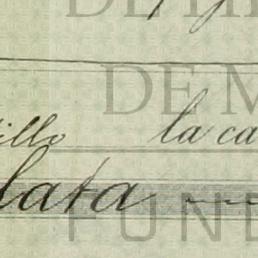 DE
DE M
illo la ca
lata
FUND